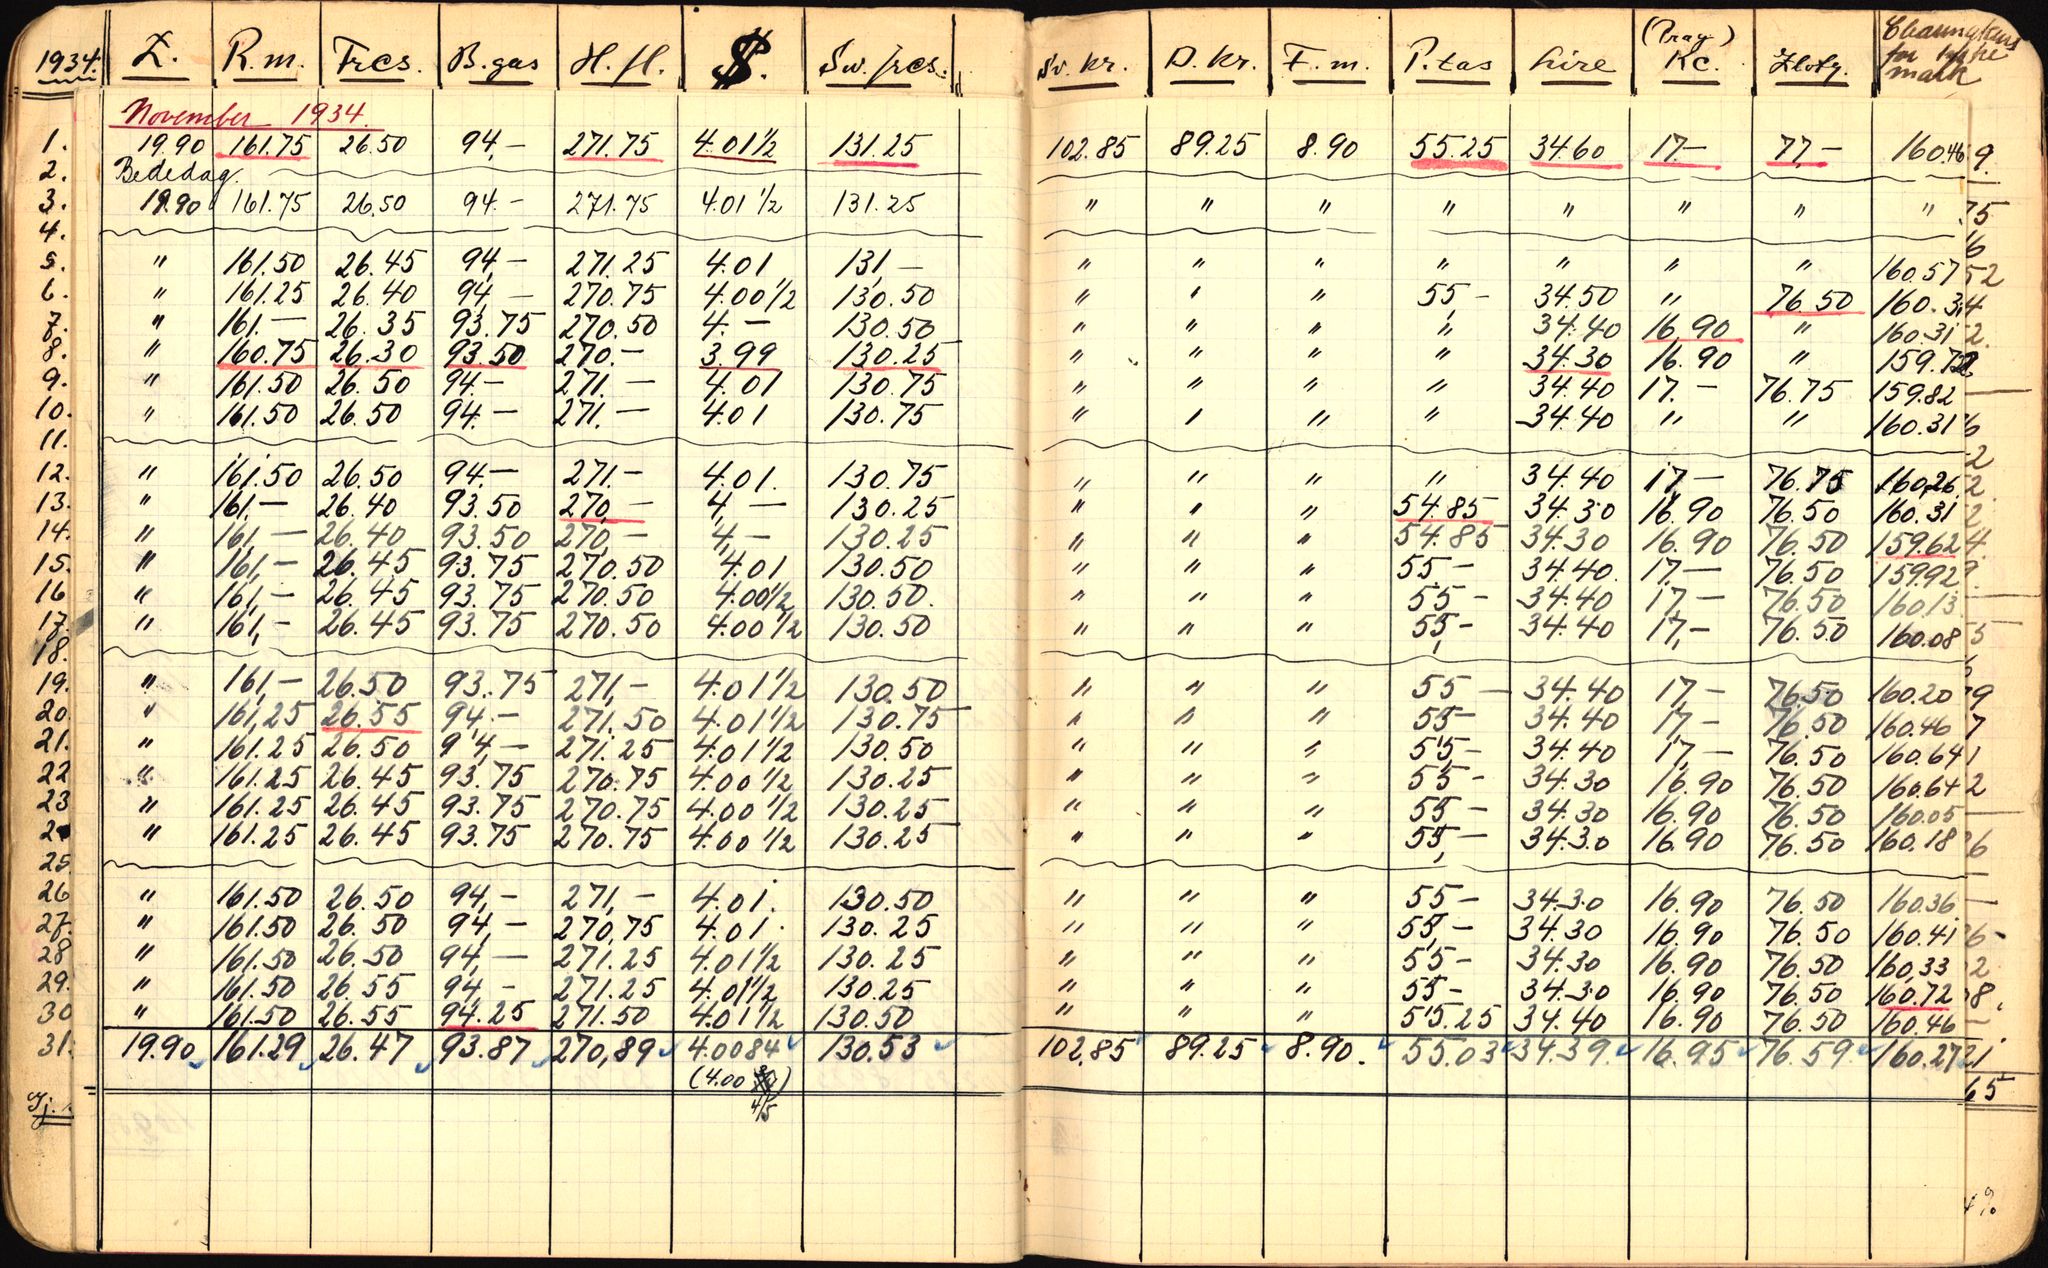 1934. £. R.m. Frcs. B.gas H.fl. $. Sw. frcs. Sv. kr. D. Kr. F. m. P.tas Lire (Prag) Kc. Zloty. for mark
November 1934.
1. 19.90 161.75 26.50 94,- 271.75 4.01 1/2 131.25 102.85 89.25 8.90 55.25 34.60 17.- 77,- 160.46
2. Bededag.
3. 19.90 161.75 26.50 94.- 271.75 4.01 1/2 131.25 " " " " " " " "
4.
5. " 161.50 26.45 94,- 271.25 4.01 131,- " " " " " " " 160.57
6. " 161.25 26.40 94,- 270.75 4.00 1/2 130.50 " " " 55,- 34.50 " 76.50 160.34
7. " 161.- 26.35 93.75 270.50 4.- 130.50 " " " " 34.40 16.90 " 160.31
8. " 160.75 26.30 93.50 270.- 3.99 130.25 " " " " 34.30 16.90 " 159.72
9. " 161.50 26.50 94.- 271.- 4.01 130.75 " " " " 34.40 17.- 76.75 159.82
10. " 161.50 26.50 94.- 271.- 4.01 130.75 " " " " 34.40 " " 160.31
11.
12. " 161.50 26.50 94.- 271.- 4.01. 130.75 " " " " 34.40 17,- 76.75 160.26
13. " 161,- 26.40 93.50 270,- 4,- 130.25 " " " 54.85 34.30 16.90 76.50 160.31
14. " 161,- 26.40 93.50 270,- 4,- 130.25 " " " 54.85 34.30 16.90 76.50 159.62
15. " 161,- 26.45 93.75 270.50 4.01 130.50 " " " 55- 34.40. 17,- 76.50 159.92
16 " 161,- 26.45 93.75 270.50 4.00 1/2 130.50. " " " 55,- 34.40 17,- 76.50 160.13
17. " 161,- 26.45 93.75 270.50 4.00 1/2 130.50 " " " 55,- 34.40 17,- 76.50 160.08
18.
19. " 161,- 26.50 93.75 271,- 4.01 1/2 130.50 " " " 55- 34.40 17,- 76.50 160.20
20. " 161,25 26.55 94,- 271.50 4.01 1/2 130.75 " " " 55- 34.40 17,- 76.50 160.46
21. " 161.25 26.50 94,- 271.25 4.01 1/2 130.50 " " " 55,- 34.40 17,- 76.50 160.64
22 " 161.25 26.45 93.75 270.75 4.00 1/2 130.25 " " " 55- 34.30 16.90 76.50 160.64
23 " 161.25 26.45 93.75 270.75 4.00 1/2 130.25 " " " 55- 34.30 16.90 76.50 160.05
" 161.25 26.45 93.75 270.75 4.00 1/2 130.25 " " " 55,- 34.30 16.90 76.50 160.18
25.
26 " 161.50 26.50 94,- 271,- 4.01. 130.50 " " " 55- 34.30 16.90 76.50 160.36
27. " 161.50 26.50 94,- 270,75 4.01. 130.25 " " " 55,- 34.30 16.90 76.50 160.41
28 " 161.50 26.50 94,- 271.25 4.01 1/2 130.25 " " " 55- 34.30 16.90 76.50 160,33
29. " 161.50 26.55 94,- 271.25 4.01 1/2 130.25 " " " 55- 34.30 16.90 76.50 160.72
30 " 161.50 26.55 94.25 271.50 4.01 1/2 130.50 " " " 55.25 34.40 16.90 76.50 160.46
31. 19.90 161.29 26.47 93.87 270,89 4.0084 130.53 102,85 89.25 8.90. 55.03 34.39. 16.95 76.59 160.27
(4.00 )
4/5